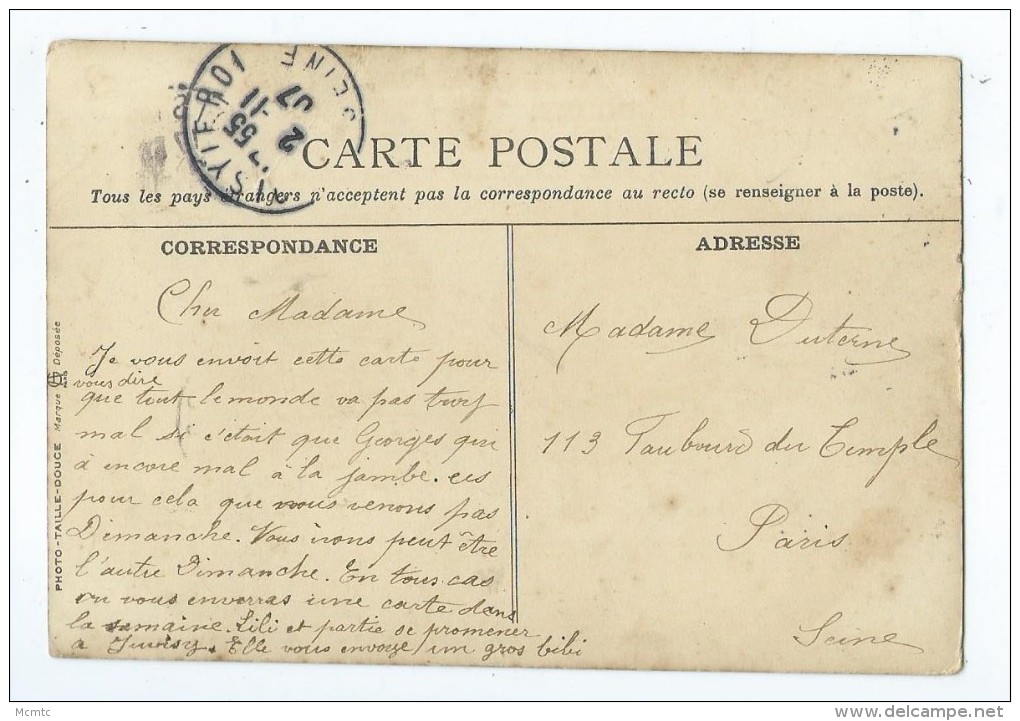 CHOISY-LE-ROI
SEINE
55
2 -11
07
CARTE POSTALE
Tous les pays étrangers n'acceptent pas la correspondance au recto (se renseigner à la poste).
CORRESPONDANCE
Cher Madame
Je vous envoit cette carte pour
vous dire
que tout le monde va pas trop
mal si c'était que Georges qui
à encore mal à la jambe. ces
pour cela que nous venons pas
Dimanche. Nous irons peut être
l'autre Dimanche. En tous cas
on vous enverras une carte dans
la semaine. Lili et partie se promener
a Juvisy. Elle vous envoye un gros bibi
ADRESSE
Madame Duterne
113 Faubourd du Temple
Paris
Seine
PHOTO-TAILLE-DOUCE Marque Déposée
Mcmtc
delcampe.net